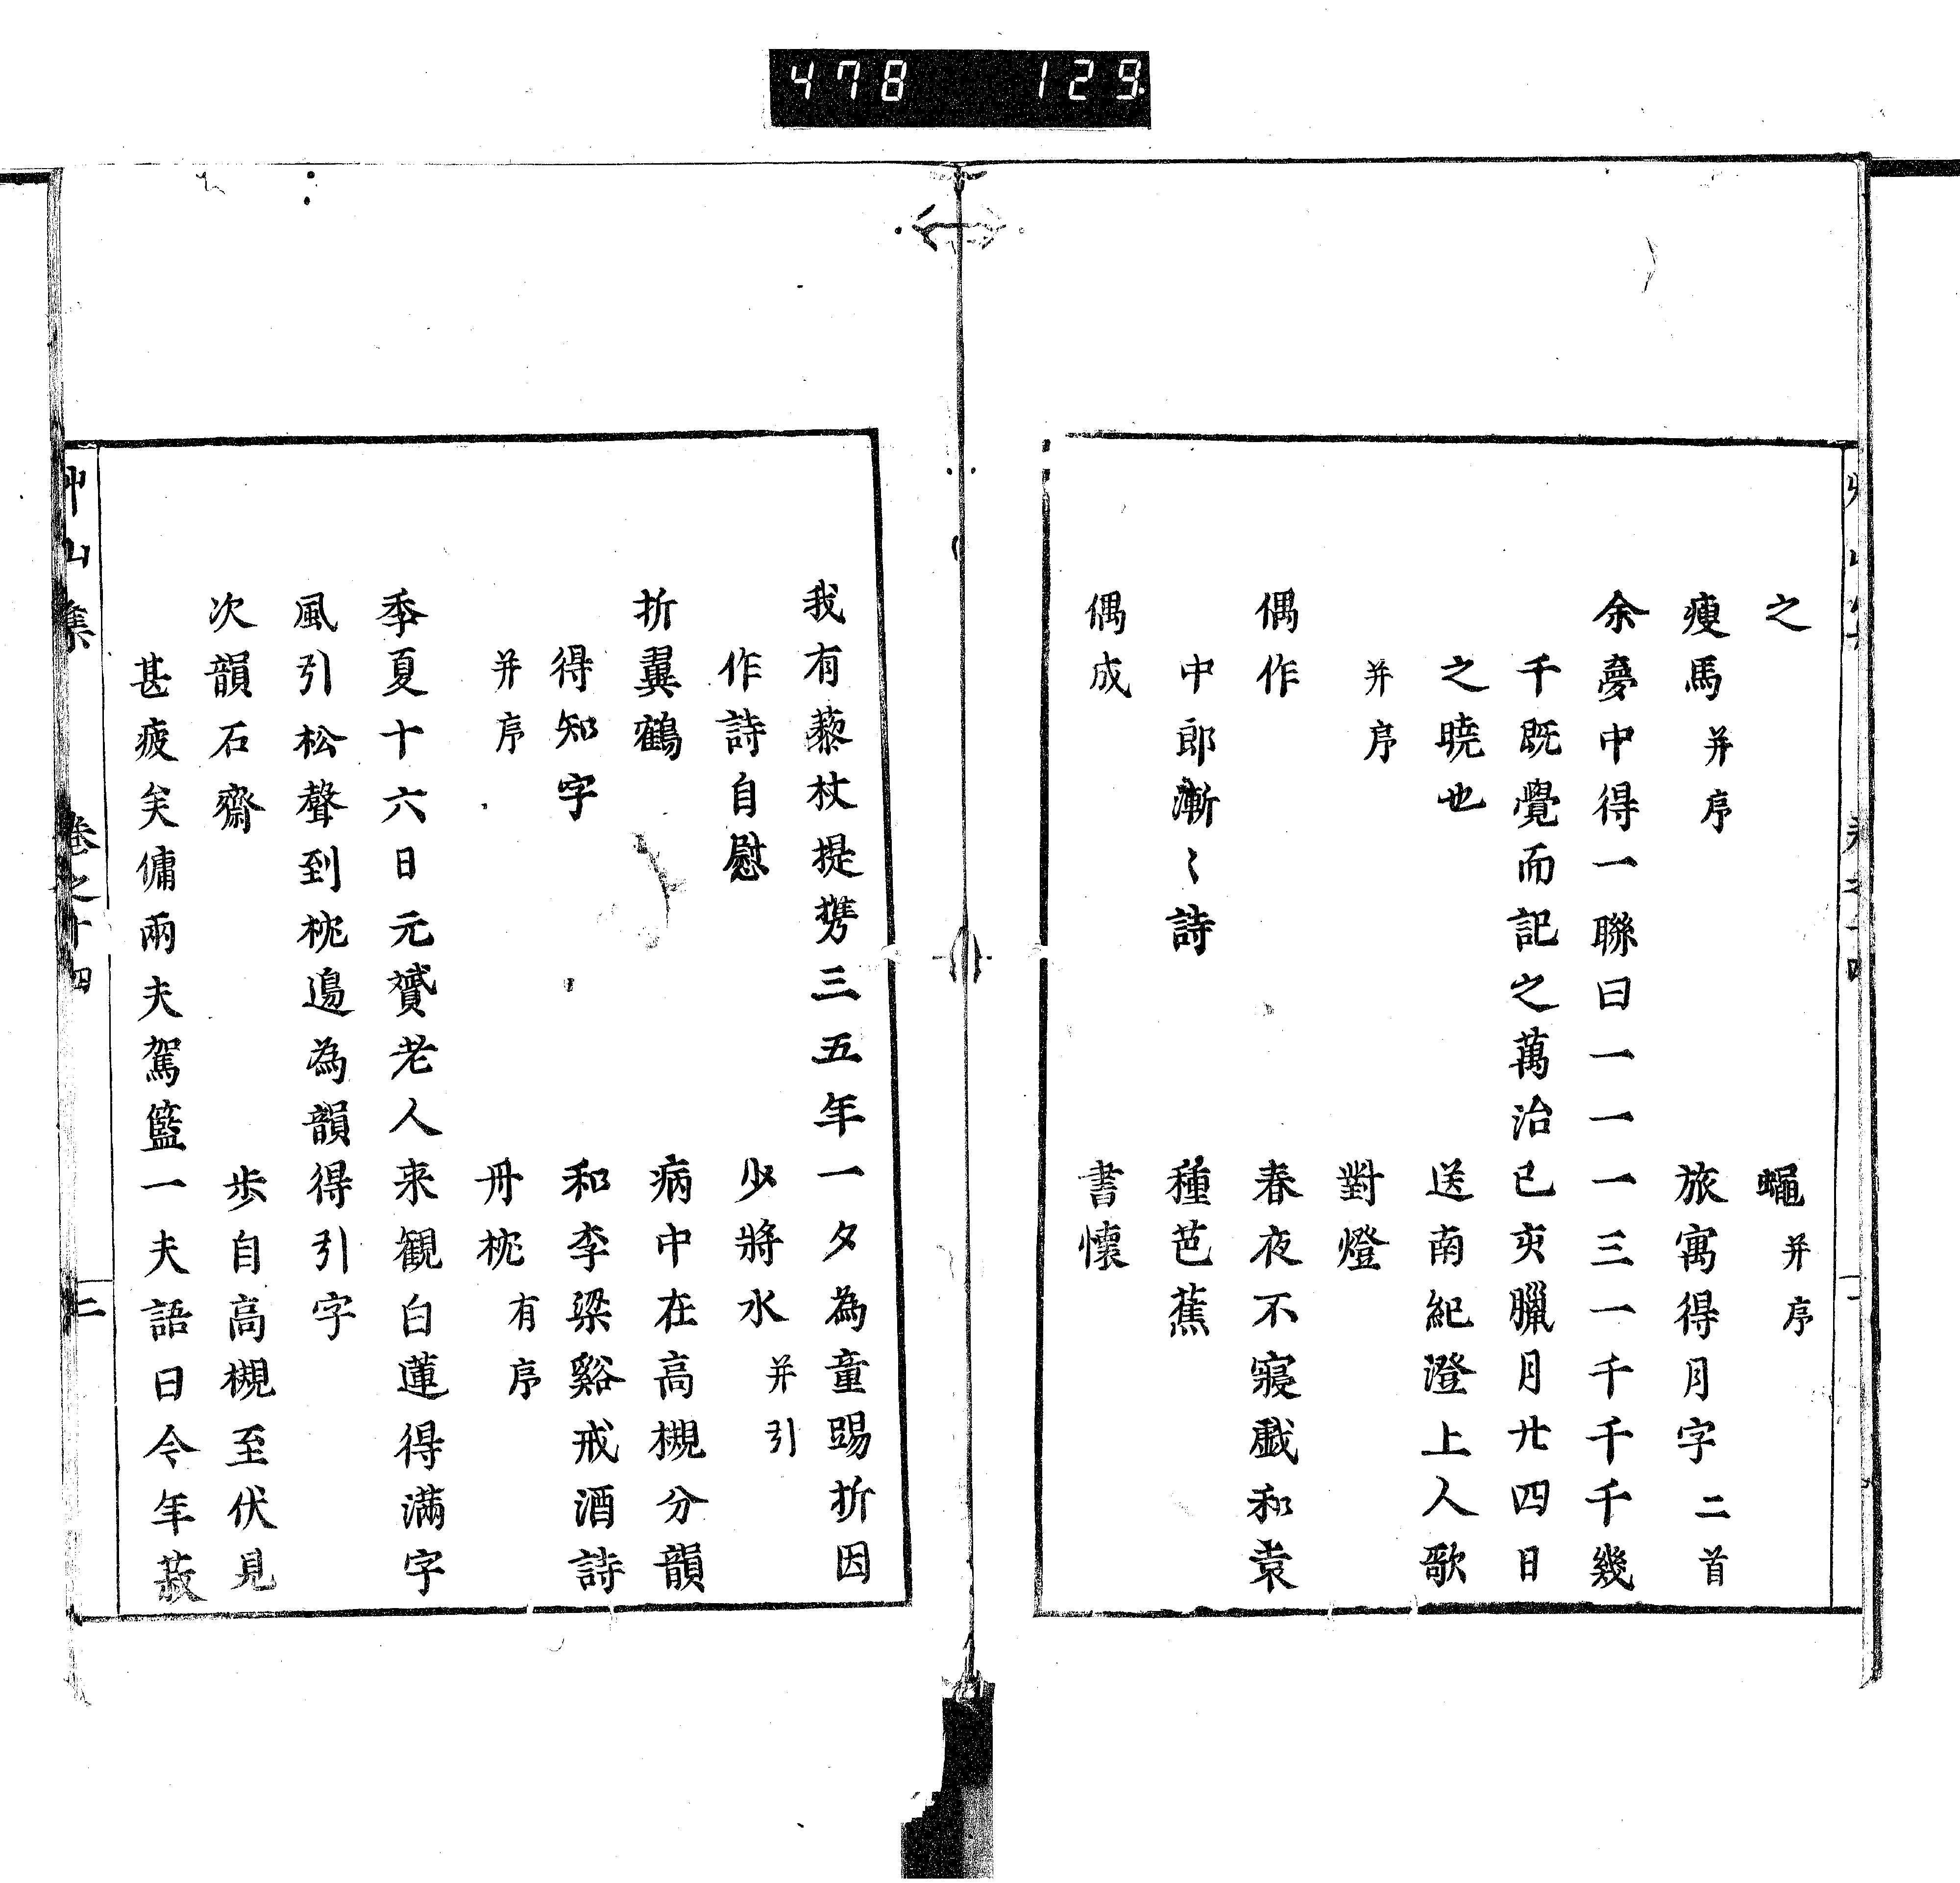 478 129
之　蠅并序
瘦馬并序　旅寓得月字二首
余夢中得一聯曰一一一三一千千千幾
千既覺而記之萬治已亥臘月廿四日
之曉也　送南紀澄上人歌
并序　對燈
偶作　春夜不寢戲和袁
中郎漸〻詩　種芭蕉
偶成　書懷
我有藜杖提携三五年一夕為童踢折因
作詩自慰　少將水并引
折翼鶴　病中在高槻分韻
得知字　和李梁谿戒酒詩
并序　丹枕有序
季夏十六日元贇老人来観白蓮得滿字
風引松聲到枕邊為韻得引字
次韻石齋　歩自高槻至伏見
甚疲矣傭兩夫駕籃一夫語曰今年菽
艸山集　卷之十四　二